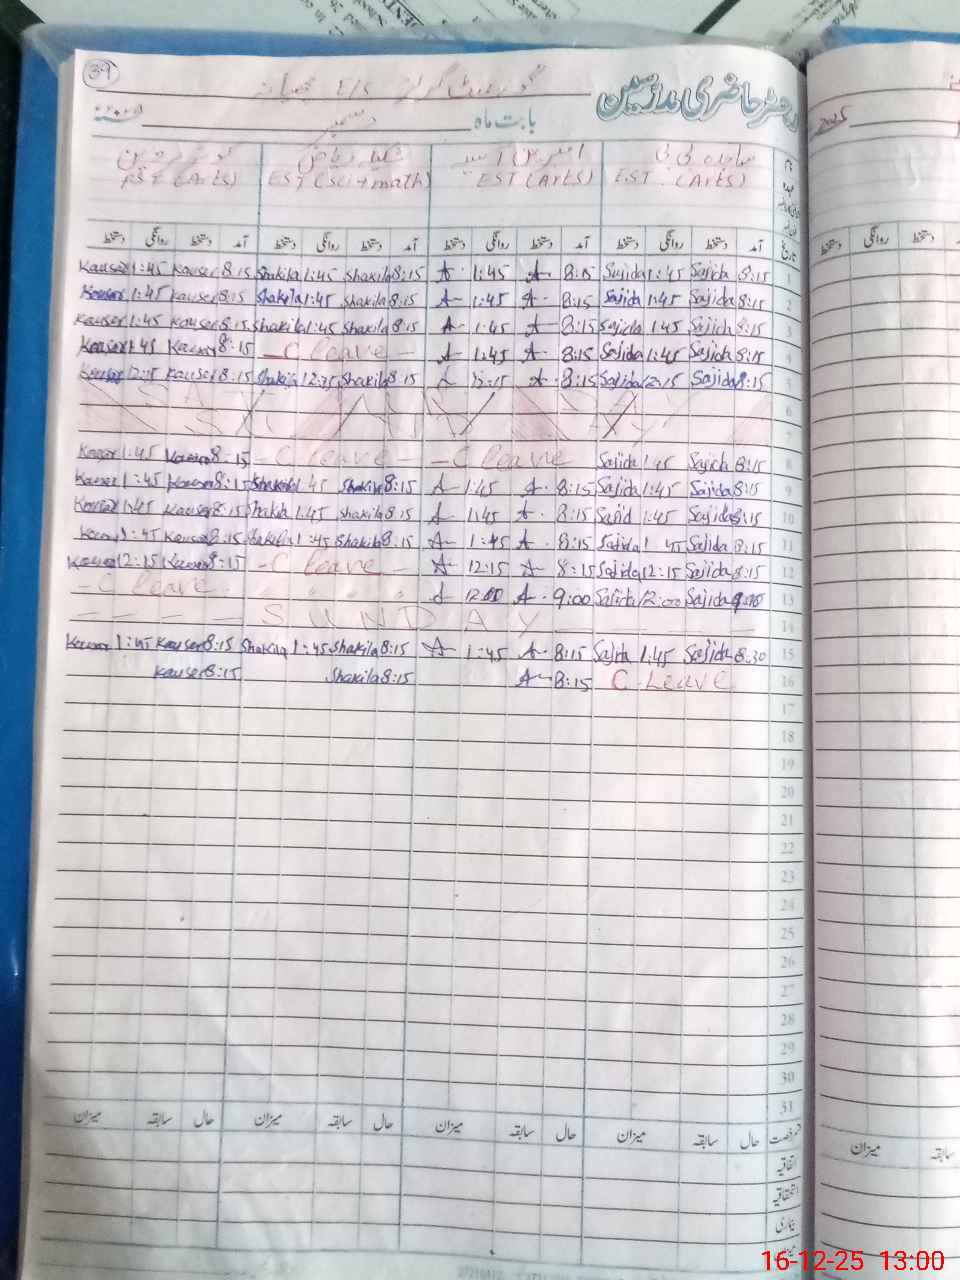 39
رجسٹر حاضری مدرسین
بابت ماہ دسمبر
2025
ساجدہ بی بی
EST (Arts)
EST (Arts)
EST (Sci+math)
EST (Arts)
تاریخ آمد دستخط روانگی دستخط آمد دستخط روانگی دستخط آمد دستخط روانگی دستخط آمد دستخط روانگی دستخط
Kauser 1:45 Kauser 8:15 Shakila 1:45 Shakila 8:15 A 1:45 A 8:15 Sajida 1:45 Sajida 8:15 1
Kauser 1:45 Kauser 8:15 Shakila 1:45 Shakila 8:15 A 1:45 A 8:15 Sajida 1:45 Sajida 8:15 2
Kauser 1:45 Kauser 8:15 Shakila 1:45 Shakila 8:15 A 1:45 A 8:15 Sajida 1:45 Sajida 8:15 3
Kauser 1:45 Kauser 8:15 - C leave - A 1:45 A 8:15 Sajida 1:45 Sajida 8:15 4
Kauser 12:15 Kauser 8:15 Shakila 12:15 Shakila 8:15 A 12:15 A 8:15 Sajida 12:15 Sajida 8:15 5
6
7
Kauser 1:45 Kauser 8:15 - C leave - - C leave Sajida 1:45 Sajida 8:15 8
Kauser 1:45 Kauser 8:15 Shakila 1:45 Shakila 8:15 A 1:45 A 8:15 Sajida 1:45 Sajida 8:15 9
Kauser 1:45 Kauser 8:15 Shakila 1:45 Shakila 8:15 A 1:45 A 8:15 Sajid 1:45 Sajida 8:15 10
Kauser 1:45 Kauser 8:15 Shakila 1:45 Shakila 8:15 A 1:45 A 8:15 Sajida 1:45 Sajida 8:15 11
Kauser 12:15 Kauser 8:15 - C leave - A 12:15 A 8:15 Sajida 12:15 Sajida 8:15 12
- C leave A 12:00 A 9:00 Sajida 12:00 Sajida 13
SUNDAY 14
Kauser 1:45 Kauser 8:15 Shakila 1:45 Shakila 8:15 A 1:45 A 8:15 Sajida 1:45 Sajida 8:30 15
Kauser 8:15 Shakila 8:15 A 8:15 C Leave 16
17
18
19
20
21
22
23
24
25
26
27
28
29
30
31
حال سابقہ میزان حال سابقہ میزان حال سابقہ میزان حال سابقہ میزان
اتفاقیہ
استحقاقیہ
بیماری
16-12-25 13:00